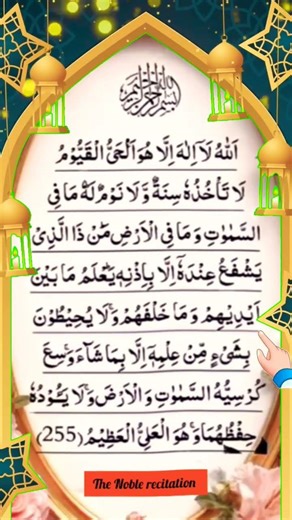 بسم الله الرحمن الرحيم
اَللّٰهُ لَاۤ اِلٰهَ اِلَّا هُوَ اَلْحَیُّ الْقَیُّوْمُ
لَا تَاْخُذُهٗ سِنَةٌ وَّلَا نَوْمٌ لَهٗ مَا فِی
السَّمٰوٰتِ وَمَا فِی الْاَرْضِ مَنْ ذَا الَّذِیْ
یَشْفَعُ عِنْدَهٗۤ اِلَّا بِاِذْنِهٖ یَعْلَمُ مَا بَیْنَ
اَیْدِیْهِمْ وَمَا خَلْفَهُمْ وَلَا یُحِیْطُوْنَ
بِشَیْءٍ مِّنْ عِلْمِهٖۤ اِلَّا بِمَا شَآءَ وَسِعَ
كُرْسِیُّهُ السَّمٰوٰتِ وَالْاَرْضَ وَلَا یَــُٔوْدُهٗ
حِفْظُهُمَا وَهُوَ الْعَلِیُّ الْعَظِیْمُ (255)
The Noble recitation